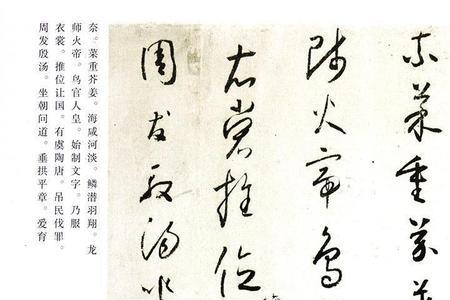 柰菜重芥
師火帝鳥
衣裳推位
周發殷湯
奈。菜重芥姜。海咸河淡。鳞潜羽翔。龙
师火帝。鸟官人皇。始制文字。乃服
衣裳。推位让国。有虞陶唐。吊民伐罪。
周发殷汤。坐朝问道。垂拱平章。爱育